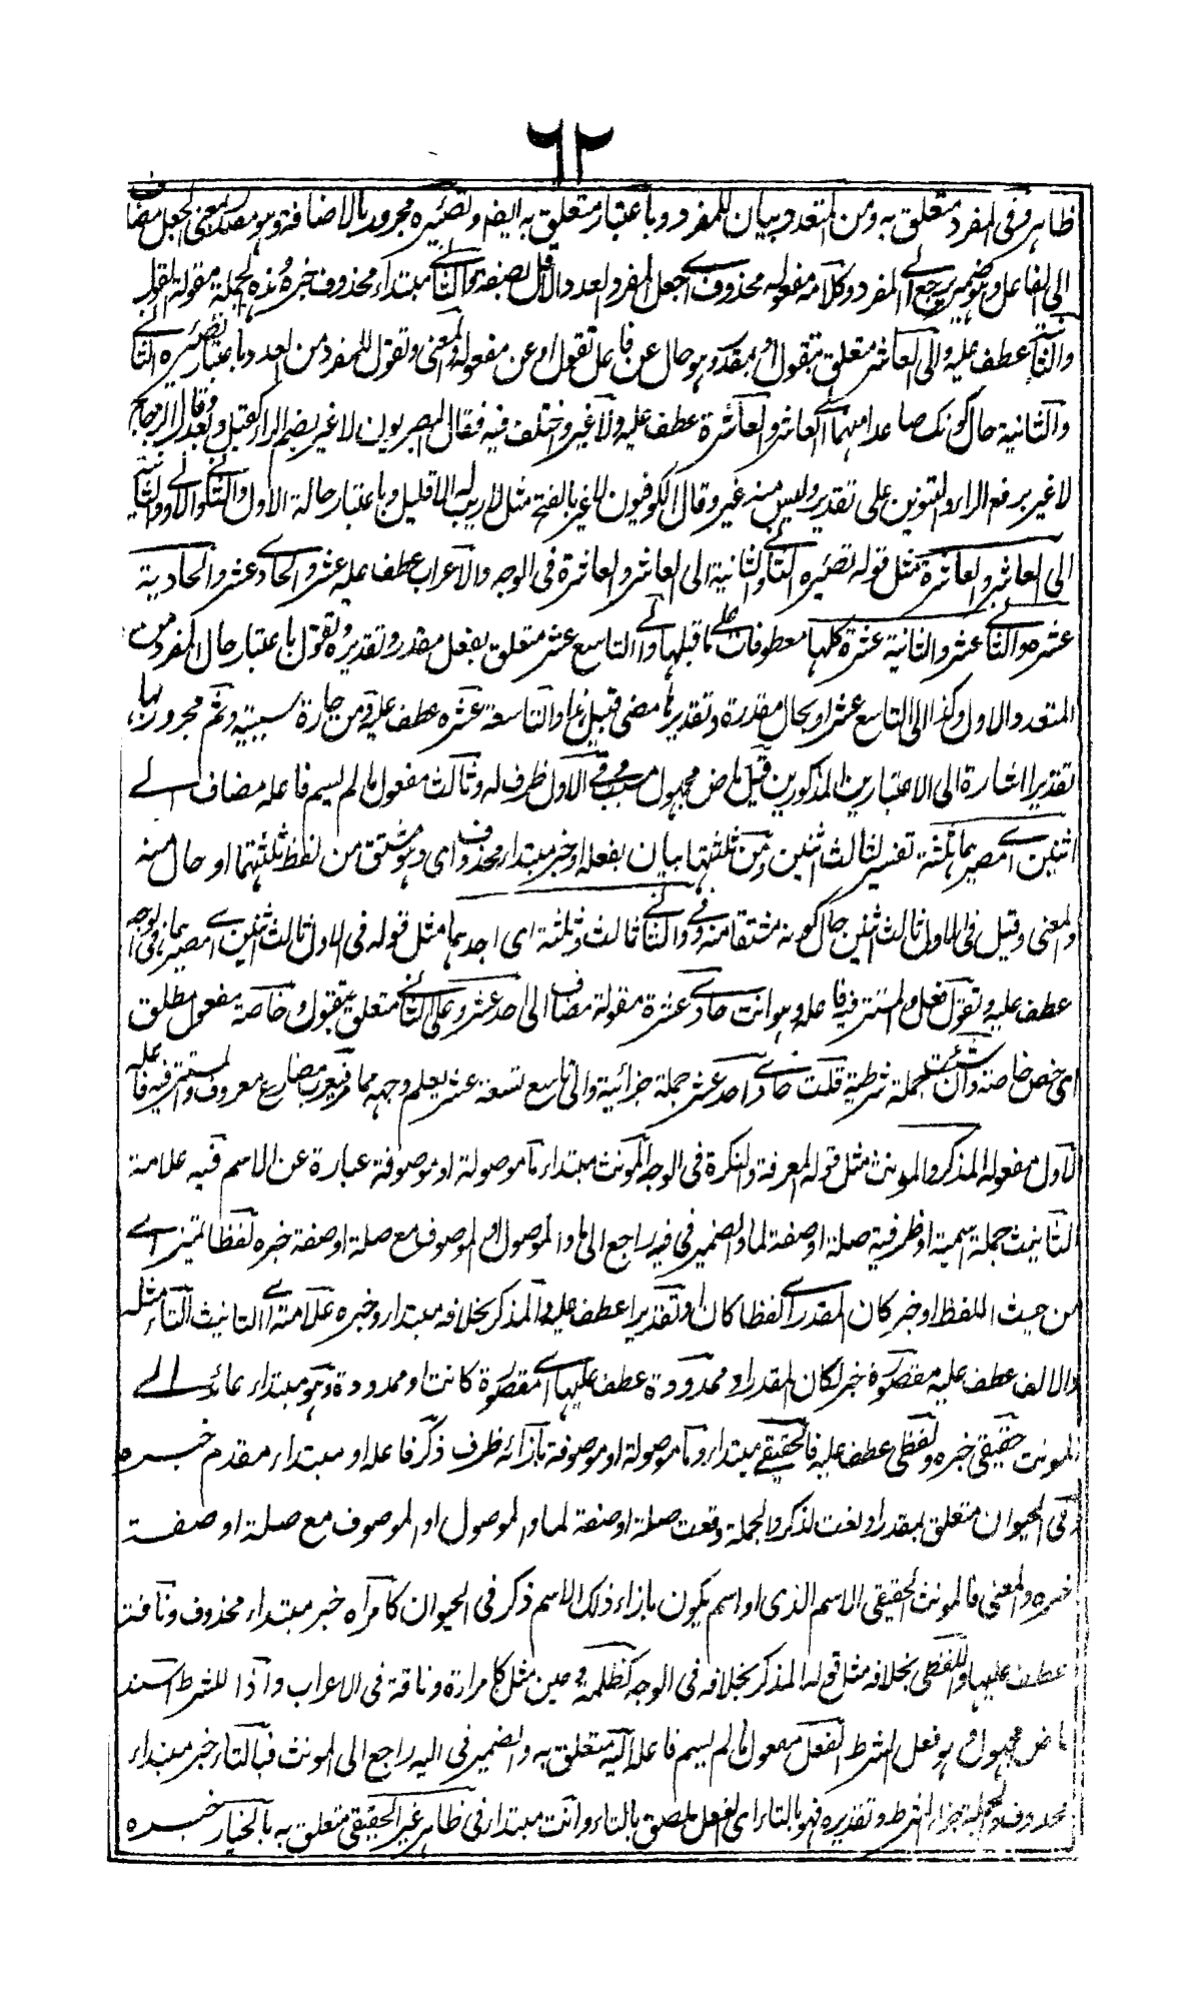 ٦٢
ظاهر وفى المفرد متعلق به ومن المتعدد بيان للمفرد وباعتبار متعلق به ايضا وتصييره مجرور بالاضافة وهو مصدر بمعنى الجعل مضاف
الى الفاعل وهو ضمير يرجع الى المفرد وكلامه مفعوله محذوف اى جعل المفرد العدد الاقل بصفته والثانى مبتداء محذوف خبره هذه الجملة مقولة لقول
والثانية عطف عليه والى العاشر متعلق بتقول او بمقدر وهو حال عن فاعل تقول او عن مفعوله والمعنى وتقول للمفرد من العدد باعتبار تصييره الثانى
والثانية حال كونك صاعدا منهما الى العاشر والعاشرة عطف عليه ولا غير واختلف فيه فقال البصريون لا غير بضم الراء كقبل وبعد وقال الزجاج
لا غير برفع الراء والتنوين على تقدير وليس منه غير وقال الكوفيون لا غير بالفتح مثل لا ريب له الا قليل وباعتبار حالة الاول والثانى والاولى والثانية
الى العاشر والعاشرة مثل قوله تصييره الثانى والثانية الى العاشر والعاشرة فى الوجه والاعراب عطف عليه عشر والحادى عشر والحادية
عشرة والثانى عشر والثانية عشرة كلها معطوفات على ما قبلها والى التاسع عشر متعلق بفعل مقدر وتقديره وتقول باعتبار حال المفرد من
المتعدد والاول وكذا الى التاسع عشر او بحال مقدرة وتقديرها مضى قبيل هذا والتاسعة عشرة عطف عليه ومن جارة سببية وثم مجرور بها
تقديرا اشارة الى الاعتبارين المذكورين قيل ماض مجهول مبنى فى الاول ظرف له وثالث مفعول ما لم يسم فاعله مضاف الى
اثنين اى مصيرهما ثلثة تفسير لثالث اثنين ومن ثلثتهما بيان بفعله او خبر مبتداء محذوف اى وهو مشتق من لفظ ثلثتهما او حال منه
والمعنى وقيل فى الاول ثالث اثنين حال كونه مشتقا منه وفى الثانى ثالث ثلثة اى احدها مثل قوله فى الاول ثالث اثنين اى مصيرهما فى الوجه
عطف عليه وتقول فعل والمستتر فيه فاعله وهو انت حادى عشرة مقولة مضاف الى احد عشر وعلى الثانى متعلق بتقول وخاصة مفعول مطلق
اى خص خاصة وان شئت جملة شرطية قلت حادى احد عشر جملة جزائية والى تاسع تسعة عشر يعلم وجهه مما مر فتعرب مضارع معروف والمستتر فيه فاعله
الاول مفعوله المذكر والمونث مثل قوله المعرفة والنكرة فى الوجه المونث مبتداء ما موصولة او موصوفة عبارة عن الاسم فيه علامة
التانيث جملة اسمية او ظرفية صلة او صفة لما والضمير فى فيه راجع الى ما والموصول او الموصوف مع صلة او صفة خبره لفظا تميز اى
من حيث اللفظ او خبر كان المقدر اى لفظا كان او تقديرا عطف عليه والمذكر بخلافه مبتداء وخبره علامة التانيث التاء مثله
والالف عطف عليه مقصورة خبر لكان المقدر او ممدودة عطف عليها اى مقصورة كانت او ممدودة وهو مبتداء عائد الى
المونث حقيقى خبره ولفظى عطف عليه فالحقيقى مبتداء وما موصولة او موصوفة بازائه ظرف ذكر فاعله او مبتداء مقدم خبره
فى الحيوان متعلق بمقدر او نعت لذكر والجملة وقعت صلة او صفة لما والموصول او الموصوف مع صلة او صفة
خبره والمعنى فالمونث الحقيقى الاسم الذى او اسم يكون بازاء ذلك الاسم ذكر فى الحيوان كامرأه خبر مبتداء محذوف وناقة
عطف عليها واللفظى بخلافه مثل قوله المذكر بخلافه فى الوجه كظلمة وعين مثل كامراءة وناقة فى الاعراب واذا للشرط اسند
ماض مجهول وهو فعل الشرط الفعل مفعول ما لم يسم فاعلا اليه متعلق به والضمير فى اليه راجع الى المونث فبالتاء خبر مبتداء
محذوف والجملة جزاء الشرط وتقديره فهو بالتاء اى الفعل ملصق بالتاء وانت مبتداء فى ظاهر غير الحقيقى متعلق به بالخيار خبره